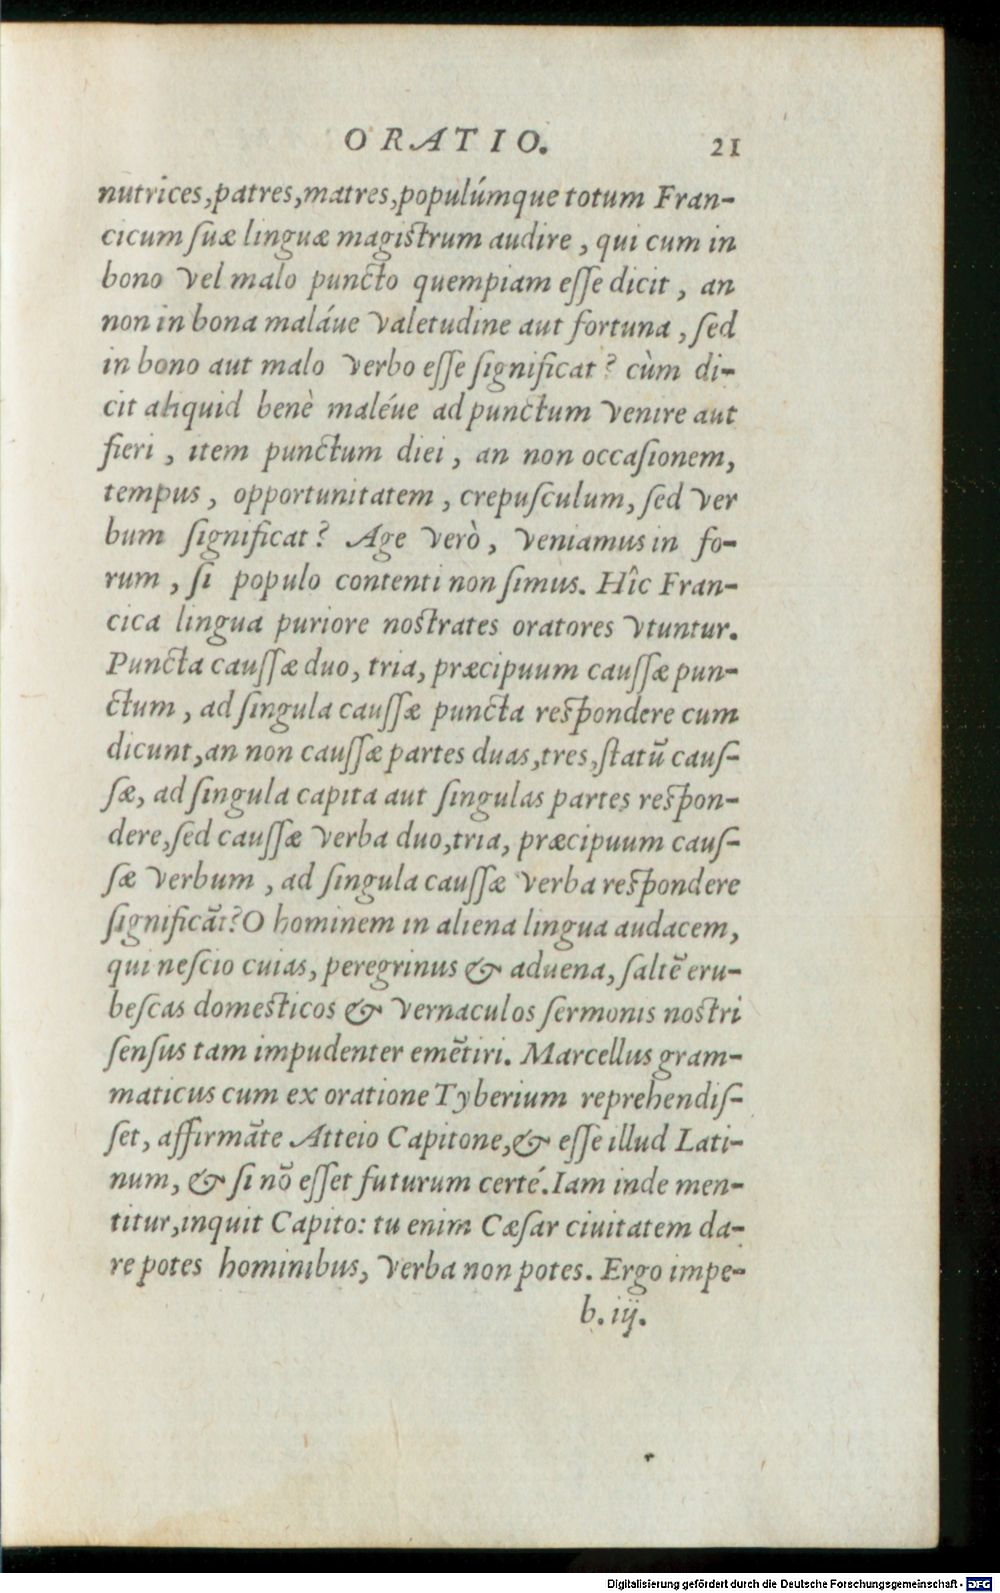 ORATIO. 21
nutrices,patres,matres,populúmque totum Fran-
cicum ſuæ linguæ magiſtrum audire , qui cum in
bono vel malo puncto quempiam eſſe dicit , an
non in bona maláue valetudine aut fortuna , ſed
in bono aut malo verbo eſſe ſignificat? cùm di-
cit aliquid benè maléue ad punctum venire aut
fieri , item punctum diei , an non occaſionem,
tempus , opportunitatem , crepuſculum, ſed ver
bum ſignificat? Age verò , veniamus in fo-
rum , ſi populo contenti non ſimus. Hîc Fran-
cica lingua puriore noſtrates oratores vtuntur.
Puncta cauſſæ duo, tria, præcipuum cauſſæ pun-
ctum , ad ſingula cauſſæ puncta reſpondere cum
dicunt,an non cauſſæ partes duas,tres,ſtatū cauſ-
ſæ, ad ſingula capita aut ſingulas partes reſpon-
dere,ſed cauſſæ verba duo,tria, præcipuum cauſ-
ſæ verbum , ad ſingula cauſſæ verba reſpondere
ſignificāt?O hominem in aliena lingua audacem,
qui neſcio cuias, peregrinus & aduena, ſaltē eru-
beſcas domeſticos & vernaculos ſermonis noſtri
ſenſus tam impudenter emētiri. Marcellus gram-
maticus cum ex oratione Tyberium reprehendiſ-
ſet, affirmāte Atteio Capitone,& eſſe illud Lati-
num, & ſi nō eſſet futurum certé.Iam inde men-
titur,inquit Capito: tu enim Cæſar ciuitatem da-
re potes hominibus, verba non potes. Ergo impe-
b. iij.
Digitalisierung gefördert durch die Deutsche Forschungsgemeinschaft - DFG